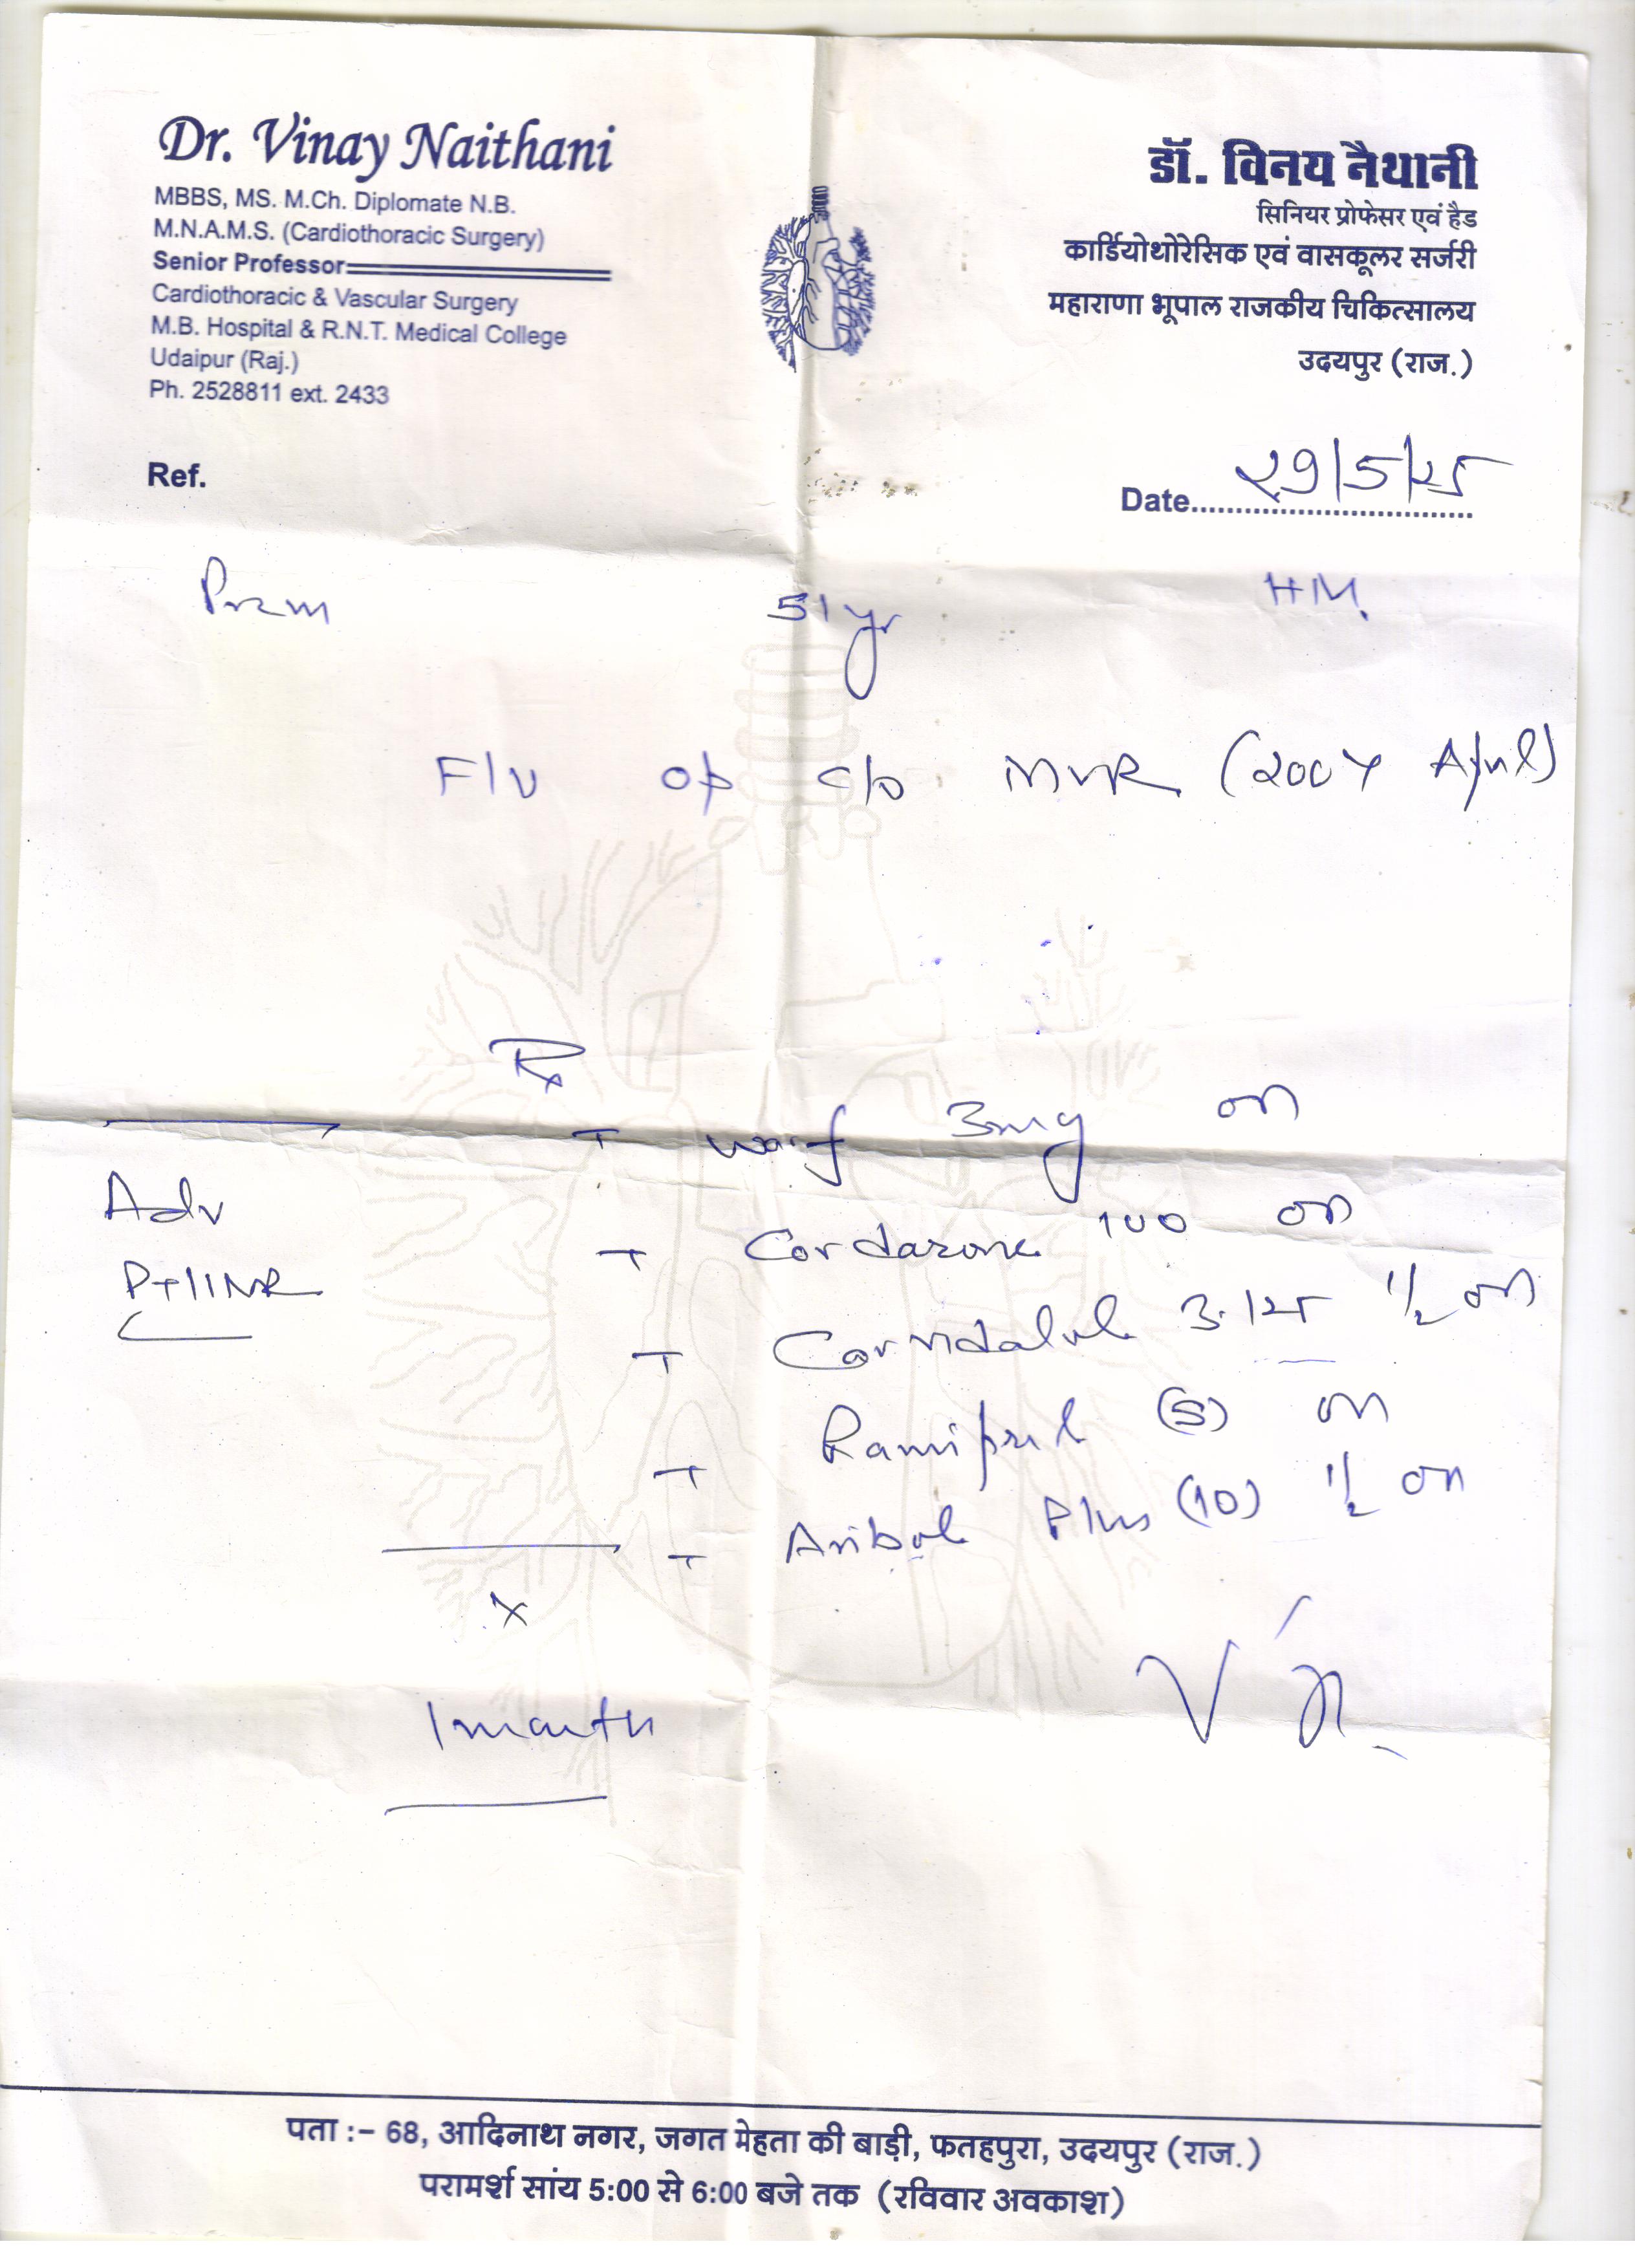 Dr. Vinay Naithani
MBBS, MS. M.Ch. Diplomate N.B.
M.N.A.M.S. (Cardiothoracic Surgery)
Senior Professor
Cardiothoracic & Vascular Surgery
M.B. Hospital & R.N.T. Medical College
Udaipur (Raj.)
Ph. 2528811 ext. 2433
डॉ. विनय नैथानी
सिनियर प्रोफेसर एवं हैड
कार्डियोथोरेसिक एवं वासकूलर सर्जरी
महाराणा भूपाल राजकीय चिकित्सालय
उदयपुर (राज.)
Ref.
Date 29/5/25
51 yr
F/U o/p c/o MVR (2007 April)
Rx
T warf 3mg on
Adv
T Cordarone 100 on
PT/INR
T 3.125 1/2 on
T Ramipril (5) on
T Plus (10) 1/2 on
x
1 month
पता :- 68, आदिनाथ नगर, जगत मेहता की बाड़ी, फतहपुरा, उदयपुर (राज.)
परामर्श सांय 5:00 से 6:00 बजे तक (रविवार अवकाश)